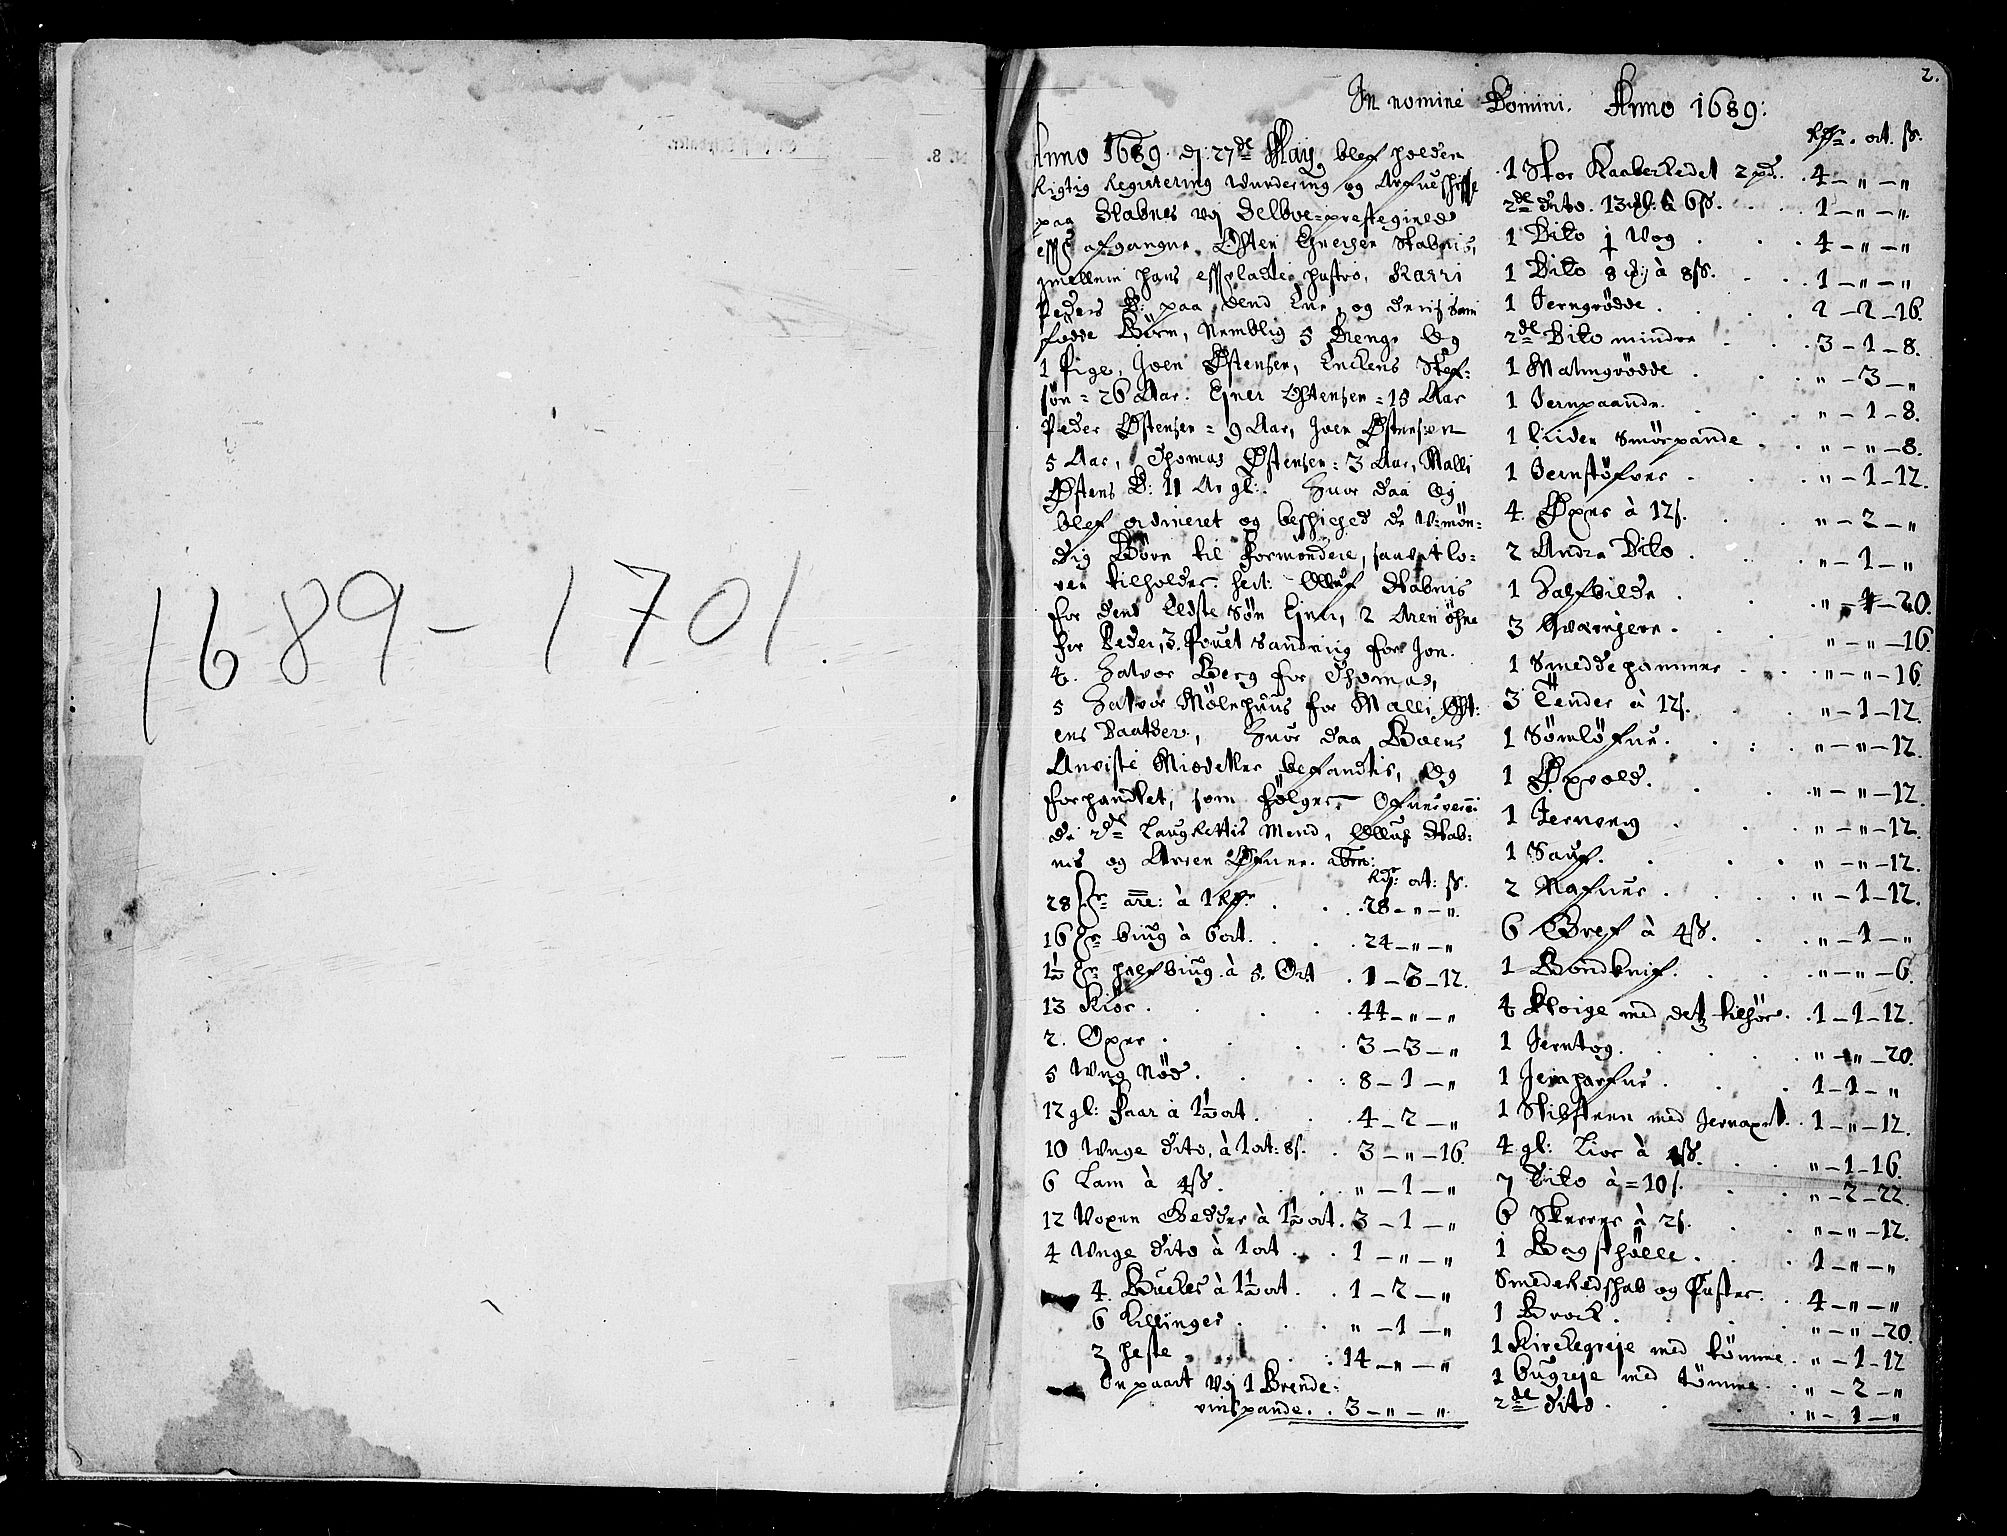 1689 - 1701.
2.
In nomine Domini. Anno 1689:
Anno 1689 dj: 27de Maij blef holden
Rigtig Registering Wurdering og Arfueschifte
paa Stabnes vdj Selboe-prestegield
effter afgangne Østen Ejnersen Stabnis,
jmellem hans effterladte hustro, Karri
Peders D: paa dend Ene, og deris sam
fødde Børn, Nemblig 5 Drenge Og
1 Pige, Joen Østensen, Enckens Stef-
søn = 26 Aar: Ejner Østensen = 15 Aar
Peder Østensen = 9 Aar, Joen Østensen
5 Aar, Thomas Østensen: 3 Aar, Malli
Østens D: 11 Ar gl:. Huor daa Og
blef ordineret og beschiched de Vmøn-
dig Børn til Formøndere, saauit lo-
ven tilholder. heit: Olluf Stabnis
for dend Eldste Søn Ejner, 2 Aren
for Peder, 3. Pouel Sandnig for Jon.
4. Haluor Berg for Thomas,
5 Haluor Mølnhuus for Malli Øst-
ens Daatder, Huor daa Boens
Anviste Mideler befandtis, Og
forhandlet, som følger, Ofueruerende
de 2de Laugrettis Mend, Olluf Stab-
nis og Arsen
Rdr: ort: ß.
28 are: à 1 Rdr . . 28 - " - ".
16 biug à 6 ort. . . 24 - " - "
1½ halfbiug à 5. Ort . 1 - 3 - 12.
13 Kiør . . . 44 - " - "
2. Oxer . . . 3 - 3 - "
5 Vng Nød . . : 8 - 1 - "
12 gl: Faar à 1½ ort . . 4 - 2 - "
10 Vnge dito, à 1 ort: 8 ß. . 3 - " - 16.
6 Lam à 4 ß. . . " - 1 - "
12 Voxen Gedder à 1½ ort. 3 - 1 - "
4 Vnge dito à 1 ort . . 1 - " - "
4. Bucker à 1½ ort. . 1 - 2 - "
6 Killinger . . . " - 1 - "
2 heste . . : 14 - " - "
En paart vdj 1 Brende-
vins pande. . 3 - " - ".
Rdr. ort. ß.
1 Stor Kaaberkedel 2 pd. . 4 - " - "
2de dito. 13 à 6 ß. . . 1 - " - "
1 Dito 1 Vog . . . 4 - " - "
1 Dito 8 à 8 ß. . . 1 - " - "
1 Jerngrødde . . . 2 - 2 - 16.
2de Dito mindre . . 3 - 1 - 8.
1 Malmgrødde . . . " - 3 - "
1 Jernpaande. . . " - 1 - 8.
1 liden Smørpande . . " - " - 8.
1 Jernstøfver . . . " - 1 - 12.
4. Øxer à 12 ß. . . " - 2 - "
2 Andre Dito . . . " - 1 - "
1 Halfbilde . . . " - 1 - 20.
3 Qvarnjern . . . " - " - 16
1 Smeddehammer . . " - " - 16
3 Tender à 12 ß. . . " - 1 - 12.
1 Sømløfue. . : . " - " - 12.
1 Øxvold. . . " - " - 12.
1 Jernveig . . . " - " - 12.
1 Sauf. . . . " - " - 12.
2 Nafuer . . . " - 1 - 12.
6 Gref à 4 ß. . . " - 1 - "
1 Bondknif. . . " - " - 6.
4 Kloige med det tilhør. . 1 - 1 - 12.
1 Jerntog . . . " - " - 20.
1 Jernharfue . . . 1 - 1 - "
1 Slibsteen med Jernaxel. . 1 - " - 12.
4 gl: Lior à 4 ß. . . " - 1 - 16
7 Dito à = 10 ß. . . " - 2 - 22
6 Skerrer à 2 ß. . . " - " - 12.
1 Bagsthelle . . . 1 - " - "
Smederedschab og Puster. . 4 - " - "
1 Brock . . . " - " - 20.
1 Kirckegreje med tømme . " - 1 - 12
1 Bugreje med tømme . " - 2 - "
2de dito . . . " - 1 - "